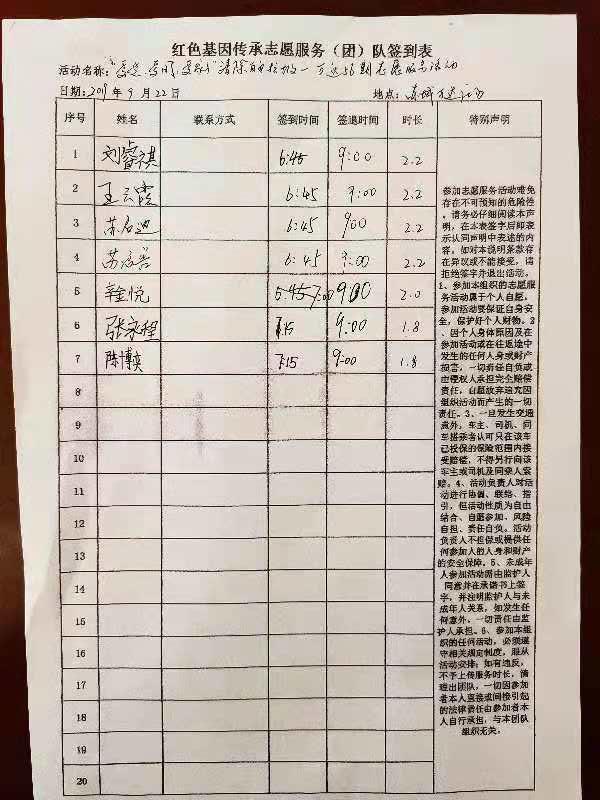 红色基因传承志愿服务（团）队签到表
活动名称：
日期：2019年9月22日 地点：
序号 姓名 联系方式 签到时间 签退时间 时长 特别声明
1 刘睿祺 6:45 9:00 2.2
2 王云霞 6:45 9:00 2.2
3 6:45 9:00 2.2
4 6:45 9:00 2.2
5 悦 6:45 7:00 9:00 2.0
6 张永程 7:15 9:00 1.8
7 陈博奕 7:15 9:00 1.8
8
9
10
11
12
13
14
15
16
17
18
19
20
参加志愿服务活动难免
存在不可预知的危险性，
请务必仔细阅读本声
明，在本表签字后即表
示认同声明中表述的内
容，如对本说明条款存
在异议或不能接受，请
拒绝签字并退出活动。
1、参加本组织的志愿服
务活动属于个人自愿，
参加活动要保证自身安
全，保护好个人财物。2、
因个人身体原因及在
参加活动或在往返途中
发生的任何人身或财产
损害，一切责任自负或
由侵权人承担完全赔偿
责任，自愿放弃追究因
组织活动而产生的一切
责任。3、一旦发生交通
意外，车主、司机、同
车搭乘者认可只在该车
已投保的保险范围内接
受赔偿，不得另行向该
车主或司机及同乘人索
赔。4、活动负责人对活
动进行协调、联络、指
引，但活动性质为自由
结合、自愿参加、风险
自担、责任自负。活动
负责人不担保或提供任
何参加人的人身和财产
的安全保障。5、未成年
人参加活动需由监护人
同意并在承诺书上签
字，并注明监护人与未
成年人关系，如发生任
何意外，一切责任由监
护人承担。6、参加本组
织的任何活动，必须遵
守相关规定制度，服从
活动安排；如有违反，
不予上传服务时长，清
理出团队，一切因参加
者本人直接或间接引起
的法律责任由参加者本
人自行承担，与本团队
组织无关。